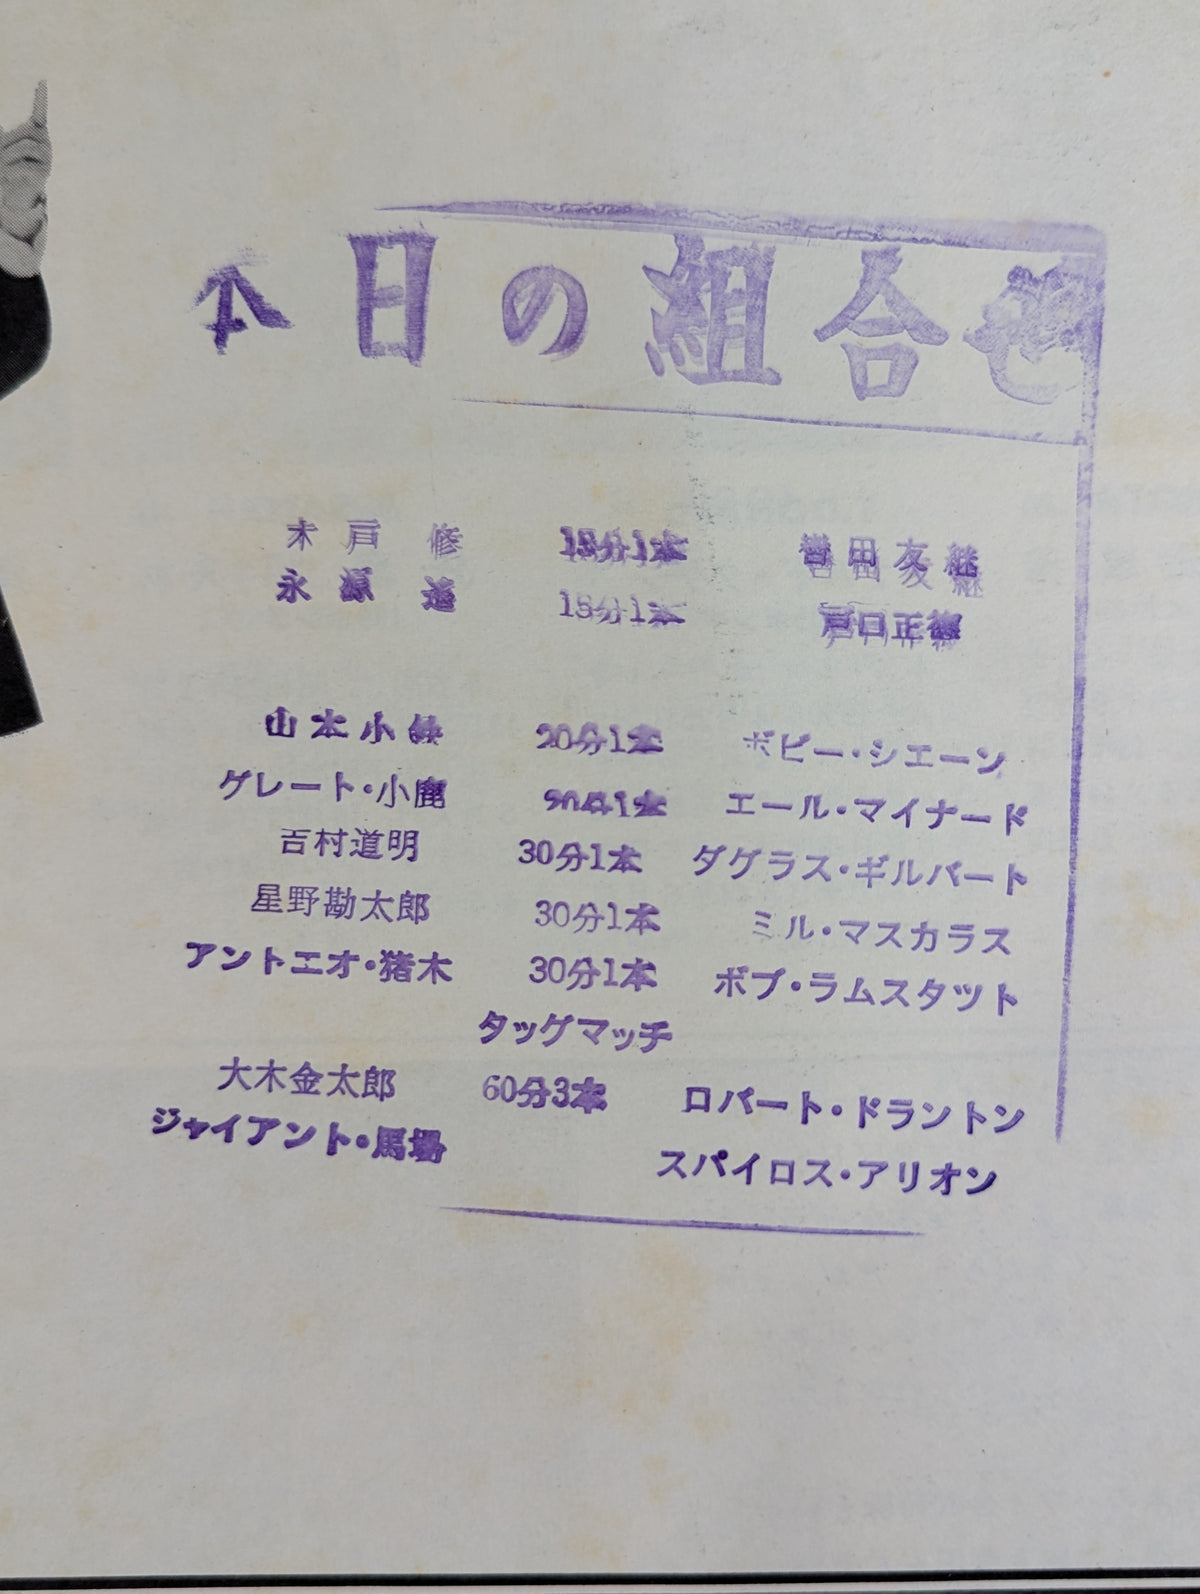 本日の組合せ
木戸修 15分1本 誉田友継
永源遥 15分1本 戸口正徳
山本小鉄 20分1本 ボビー・シエーン
グレート・小鹿 20分1本 エール・マイナード
吉村道明 30分1本 ダグラス・ギルバート
星野勘太郎 30分1本 ミル・マスカラス
アントニオ・猪木 30分1本 ボブ・ラムスタツト
タッグマッチ
大木金太郎 60分3本 ロバート・ドラントン
ジャイアント・馬場 スパイロス・アリオン